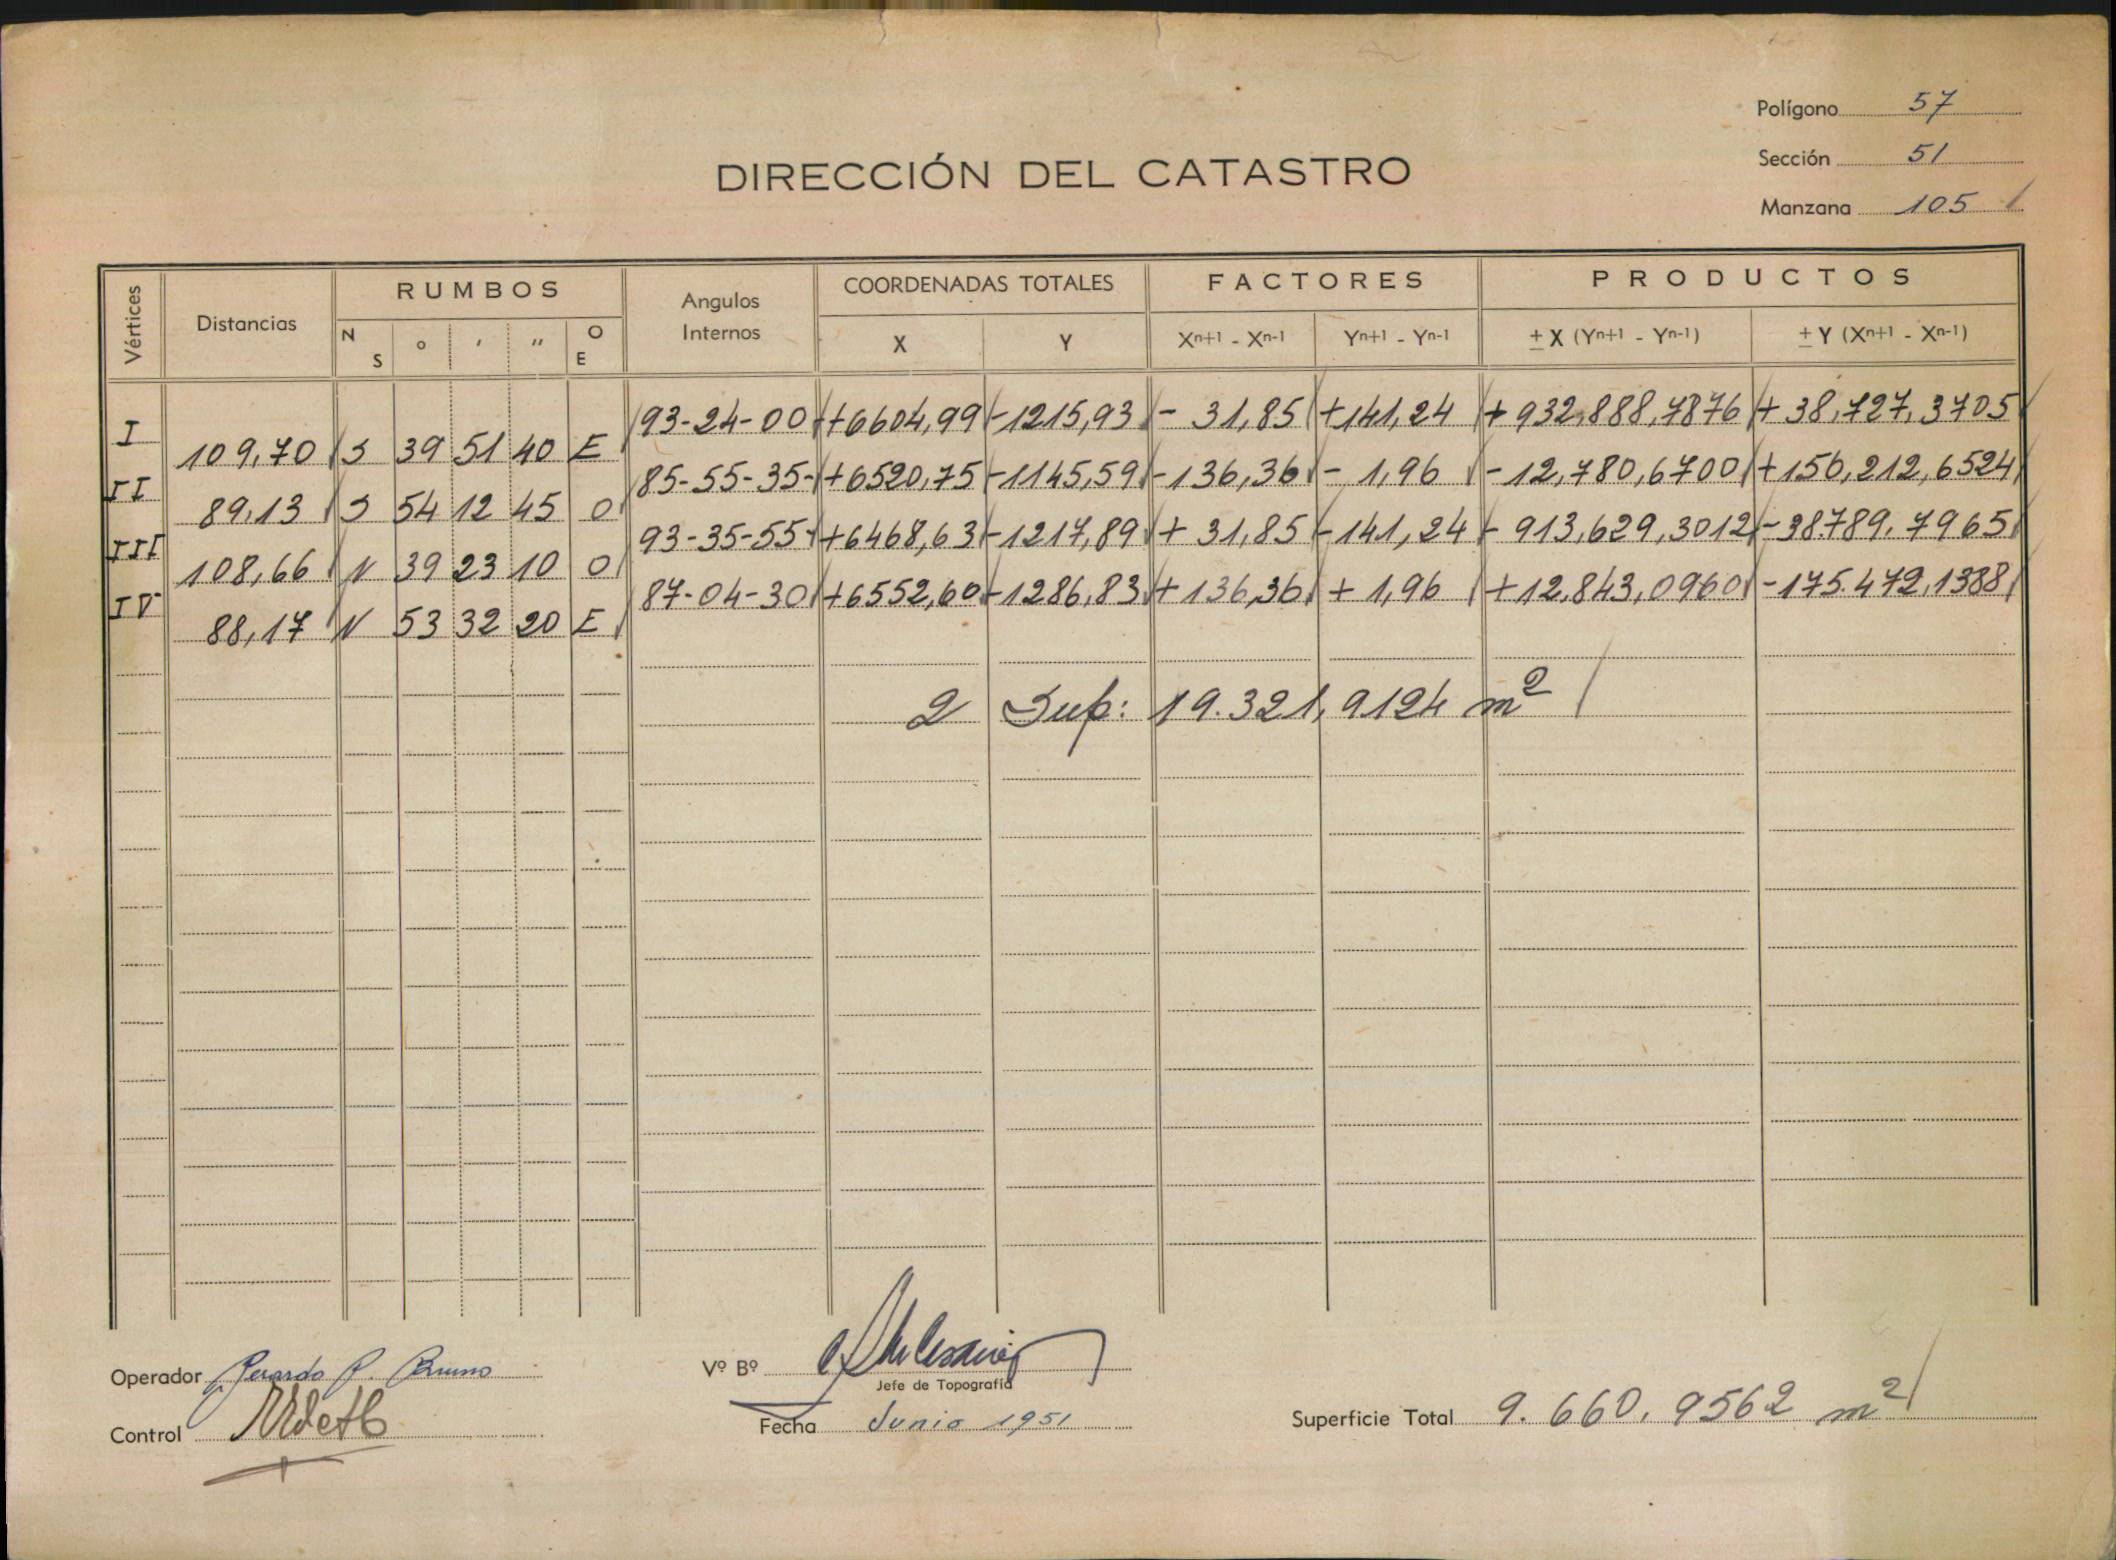 Polígono 57
Sección 51
Manzana 105
DIRECCIÓN DEL CATASTRO
Vértices Distancias RUMBOS Angulos Internos COORDENADAS TOTALES FACTORES PRODUCTOS
N S o ' '' O E X Y Xn+1 - Xn-1 Yn+1 - Yn-1 ± X (Yn+1 - Yn-1) ± Y (Xn+1 - Xn-1)
I 93-24-00 +6604,99 -1215,93 - 31,85 +141,24 +932.888,7876 +38.727,3705
109,70 S 39 51 40 E
II 85-55-35 +6520,75 -1145,59 -136,36 - 1,96 -12,780,6700 +156,212,6524
89,13 S 54 12 45 O
III 93-35-55 +6468,63 -1217,89 + 31,85 -141,24 - 913,629,3012 -38.789,7965
108,66 N 39 23 10 O
IV 87-04-30 +6552,60 -1286,83 + 136,36 + 1,96 +12,843,0960 -175.472,1388
88,17 N 53 32 20 E
2 Sup: 19.321,9124 m²
Operador Gerardo P. Bruno
Vº Bº
Jefe de Topografía
Control
Fecha Junio 1951
Superficie Total 9.660,9562 m²